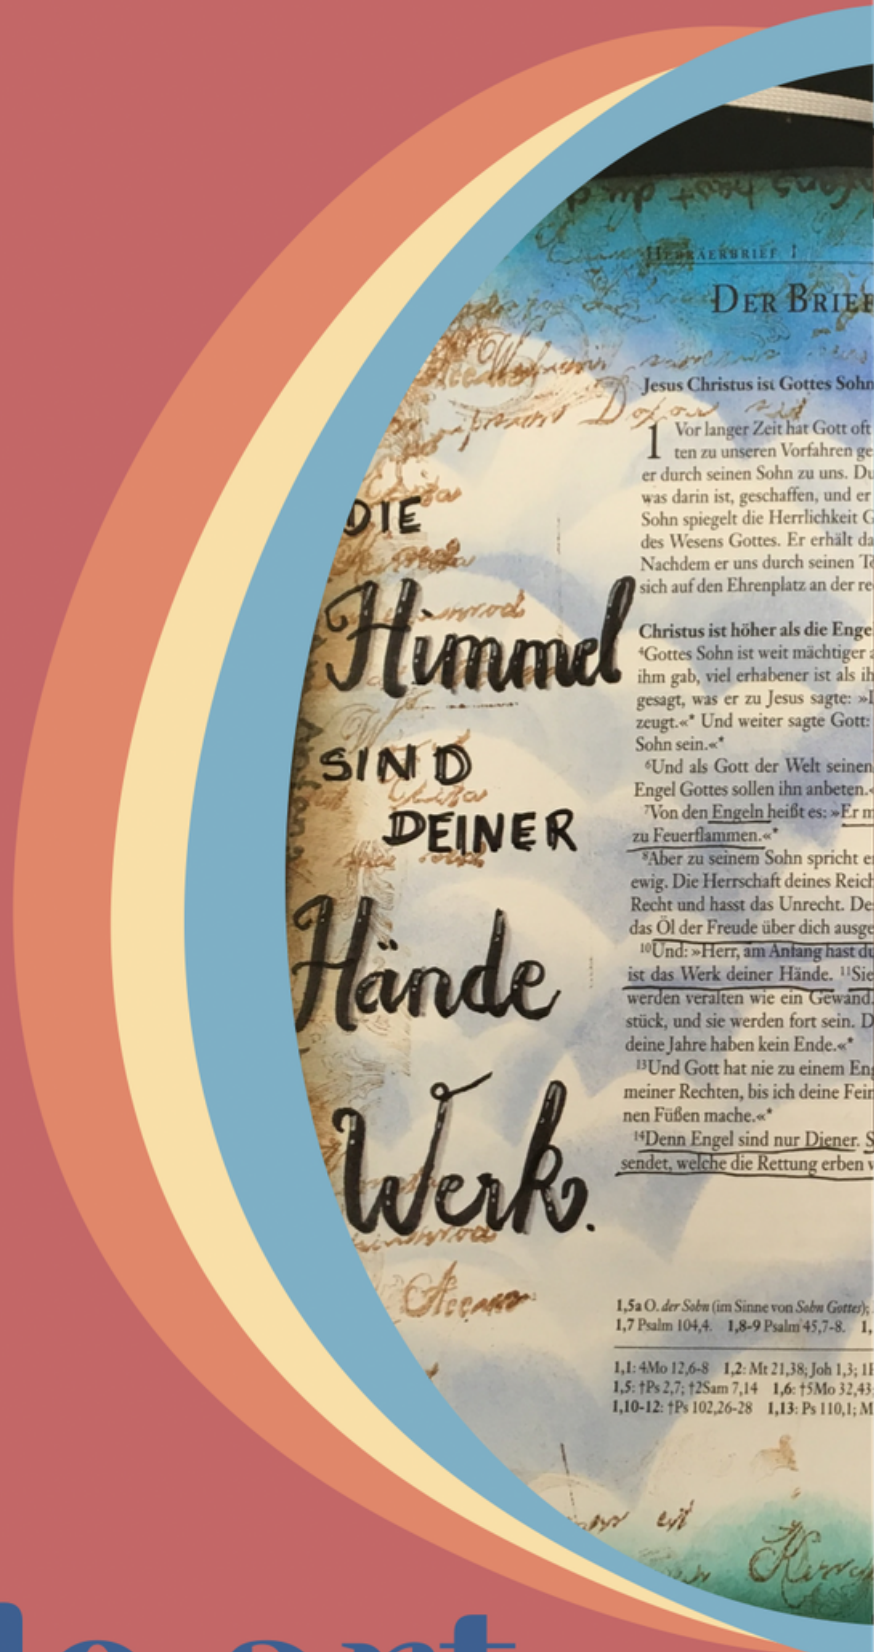 HEBRÄERBRIEF 1
DER BRIEF
Jesus Christus ist Gottes Sohn
1 Vor langer Zeit hat Gott oft
ten zu unseren Vorfahren ge
er durch seinen Sohn zu uns. Du
was darin ist, geschaffen, und er
Sohn spiegelt die Herrlichkeit G
des Wesens Gottes. Er erhält da
Nachdem er uns durch seinen To
sich auf den Ehrenplatz an der re
Christus ist höher als die Enge
⁴Gottes Sohn ist weit mächtiger a
ihm gab, viel erhabener ist als ih
gesagt, was er zu Jesus sagte: »D
zeugt.«* Und weiter sagte Gott:
Sohn sein.«*
⁶Und als Gott der Welt seinen
Engel Gottes sollen ihn anbeten.«
⁷Von den Engeln heißt es: »Er m
zu Feuerflammen.«*
⁸Aber zu seinem Sohn spricht er
ewig. Die Herrschaft deines Reich
Recht und hasst das Unrecht. De
das Öl der Freude über dich ausge
¹⁰Und: »Herr, am Anfang hast du
ist das Werk deiner Hände. ¹¹Sie
werden veralten wie ein Gewand.
stück, und sie werden fort sein. D
deine Jahre haben kein Ende.«*
¹³Und Gott hat nie zu einem Eng
meiner Rechten, bis ich deine Fein
nen Füßen mache.«*
¹⁴Denn Engel sind nur Diener. S
sendet, welche die Rettung erben w
1,5a O. der Sohn (im Sinne von Sohn Gottes);
1,7 Psalm 104,4. 1,8-9 Psalm 45,7-8. 1,
1,1: 4Mo 12,6-8 1,2: Mt 21,38; Joh 1,3; 1
1,5: †Ps 2,7; †2Sam 7,14 1,6: †5Mo 32,43
1,10-12: †Ps 102,26-28 1,13: Ps 110,1; M
DIE
Himmel
SIND
DEINER
Hände
Werk.
art